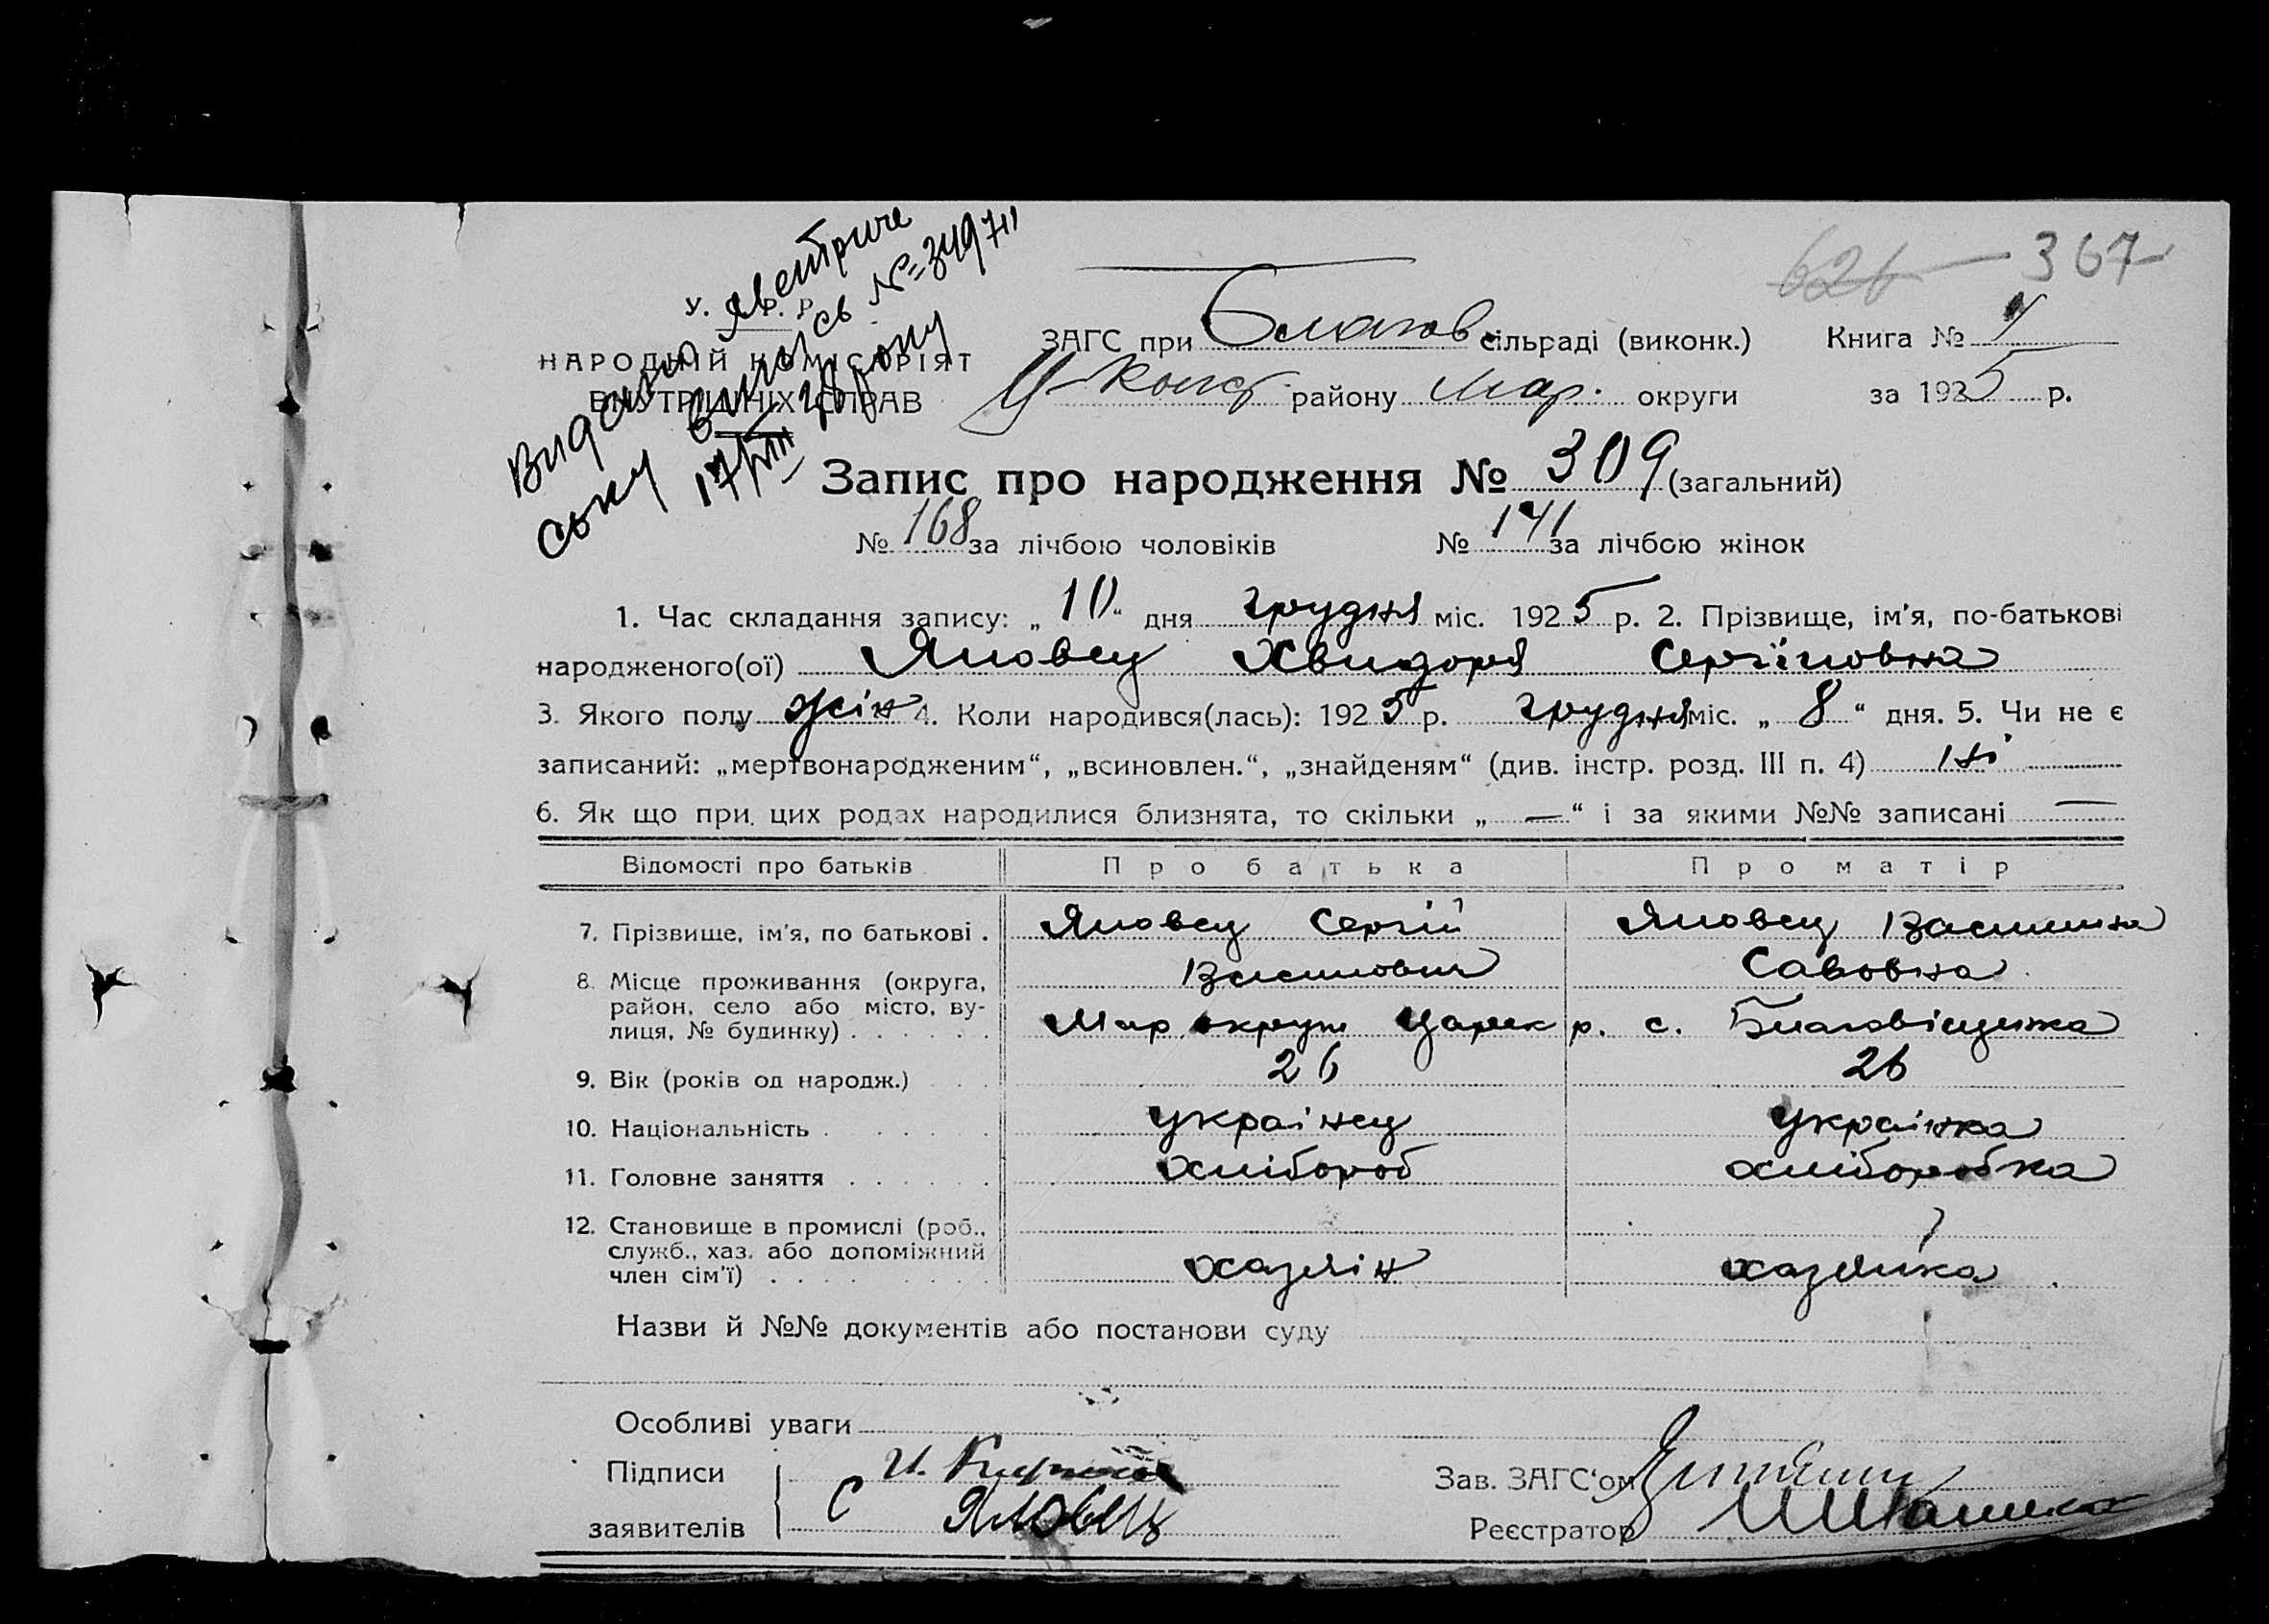 626 — 367
Видано метричне
ську випись № 349711
17/VIII 28 року
У. С. Р. Р.
НАРОДНІЙ КОМІСАРІЯТ
ВНУТРІШНІХ СПРАВ
ЗАГС при Благов. сільраді (виконк.) Книга №
Ц-Конст. району Мар. округи за 1925 р.
Запис про народження № 309 (загальний)
№ 168 за лічбою чоловіків № 141 за лічбою жінок
1. Час складання запису: „10“ дня грудня міс. 1925 р. 2. Прізвище, ім’я, по-батькові
народженого(ої) Яловец Хвидоря Сергіиовна
3. Якого полу жін 4. Коли народився(лась): 1925 р. грудня міс. „8“ дня. 5. Чи не є
записаний: „мертвонародженим“, „всиновлен.“, „знайденям“ (див. інстр. розд. III п. 4) ні
6. Як що при цих родах народилися близнята, то скільки „—“ і за якими №№ записані —
Відомості про батьків Про батька Про матір
7. Прізвище, ім’я, по батькові . Яловец Сергій Яловец Василина
Василович Савовна
8. Місце проживання (округа,
район, село або місто, ву-
лиця, № будинку) . . . . . . Мар. округи Царек р. с. Благовіщенка
9. Вік (років од народж.) . . . 26 26
10. Національність . . . . . українец українка
11. Головне заняття . . . . . . хлібороб хліборобка
12. Становище в промислі (роб.,
служб., хаз. або допоміжний
член сім’ї) . . . . . . . . хазяін хазяйка
Назви й №№ документів або постанови суду
Особливі уваги
Підписи И. Зав. ЗАГС‘ом
заявителів С Яловец Реєстратор